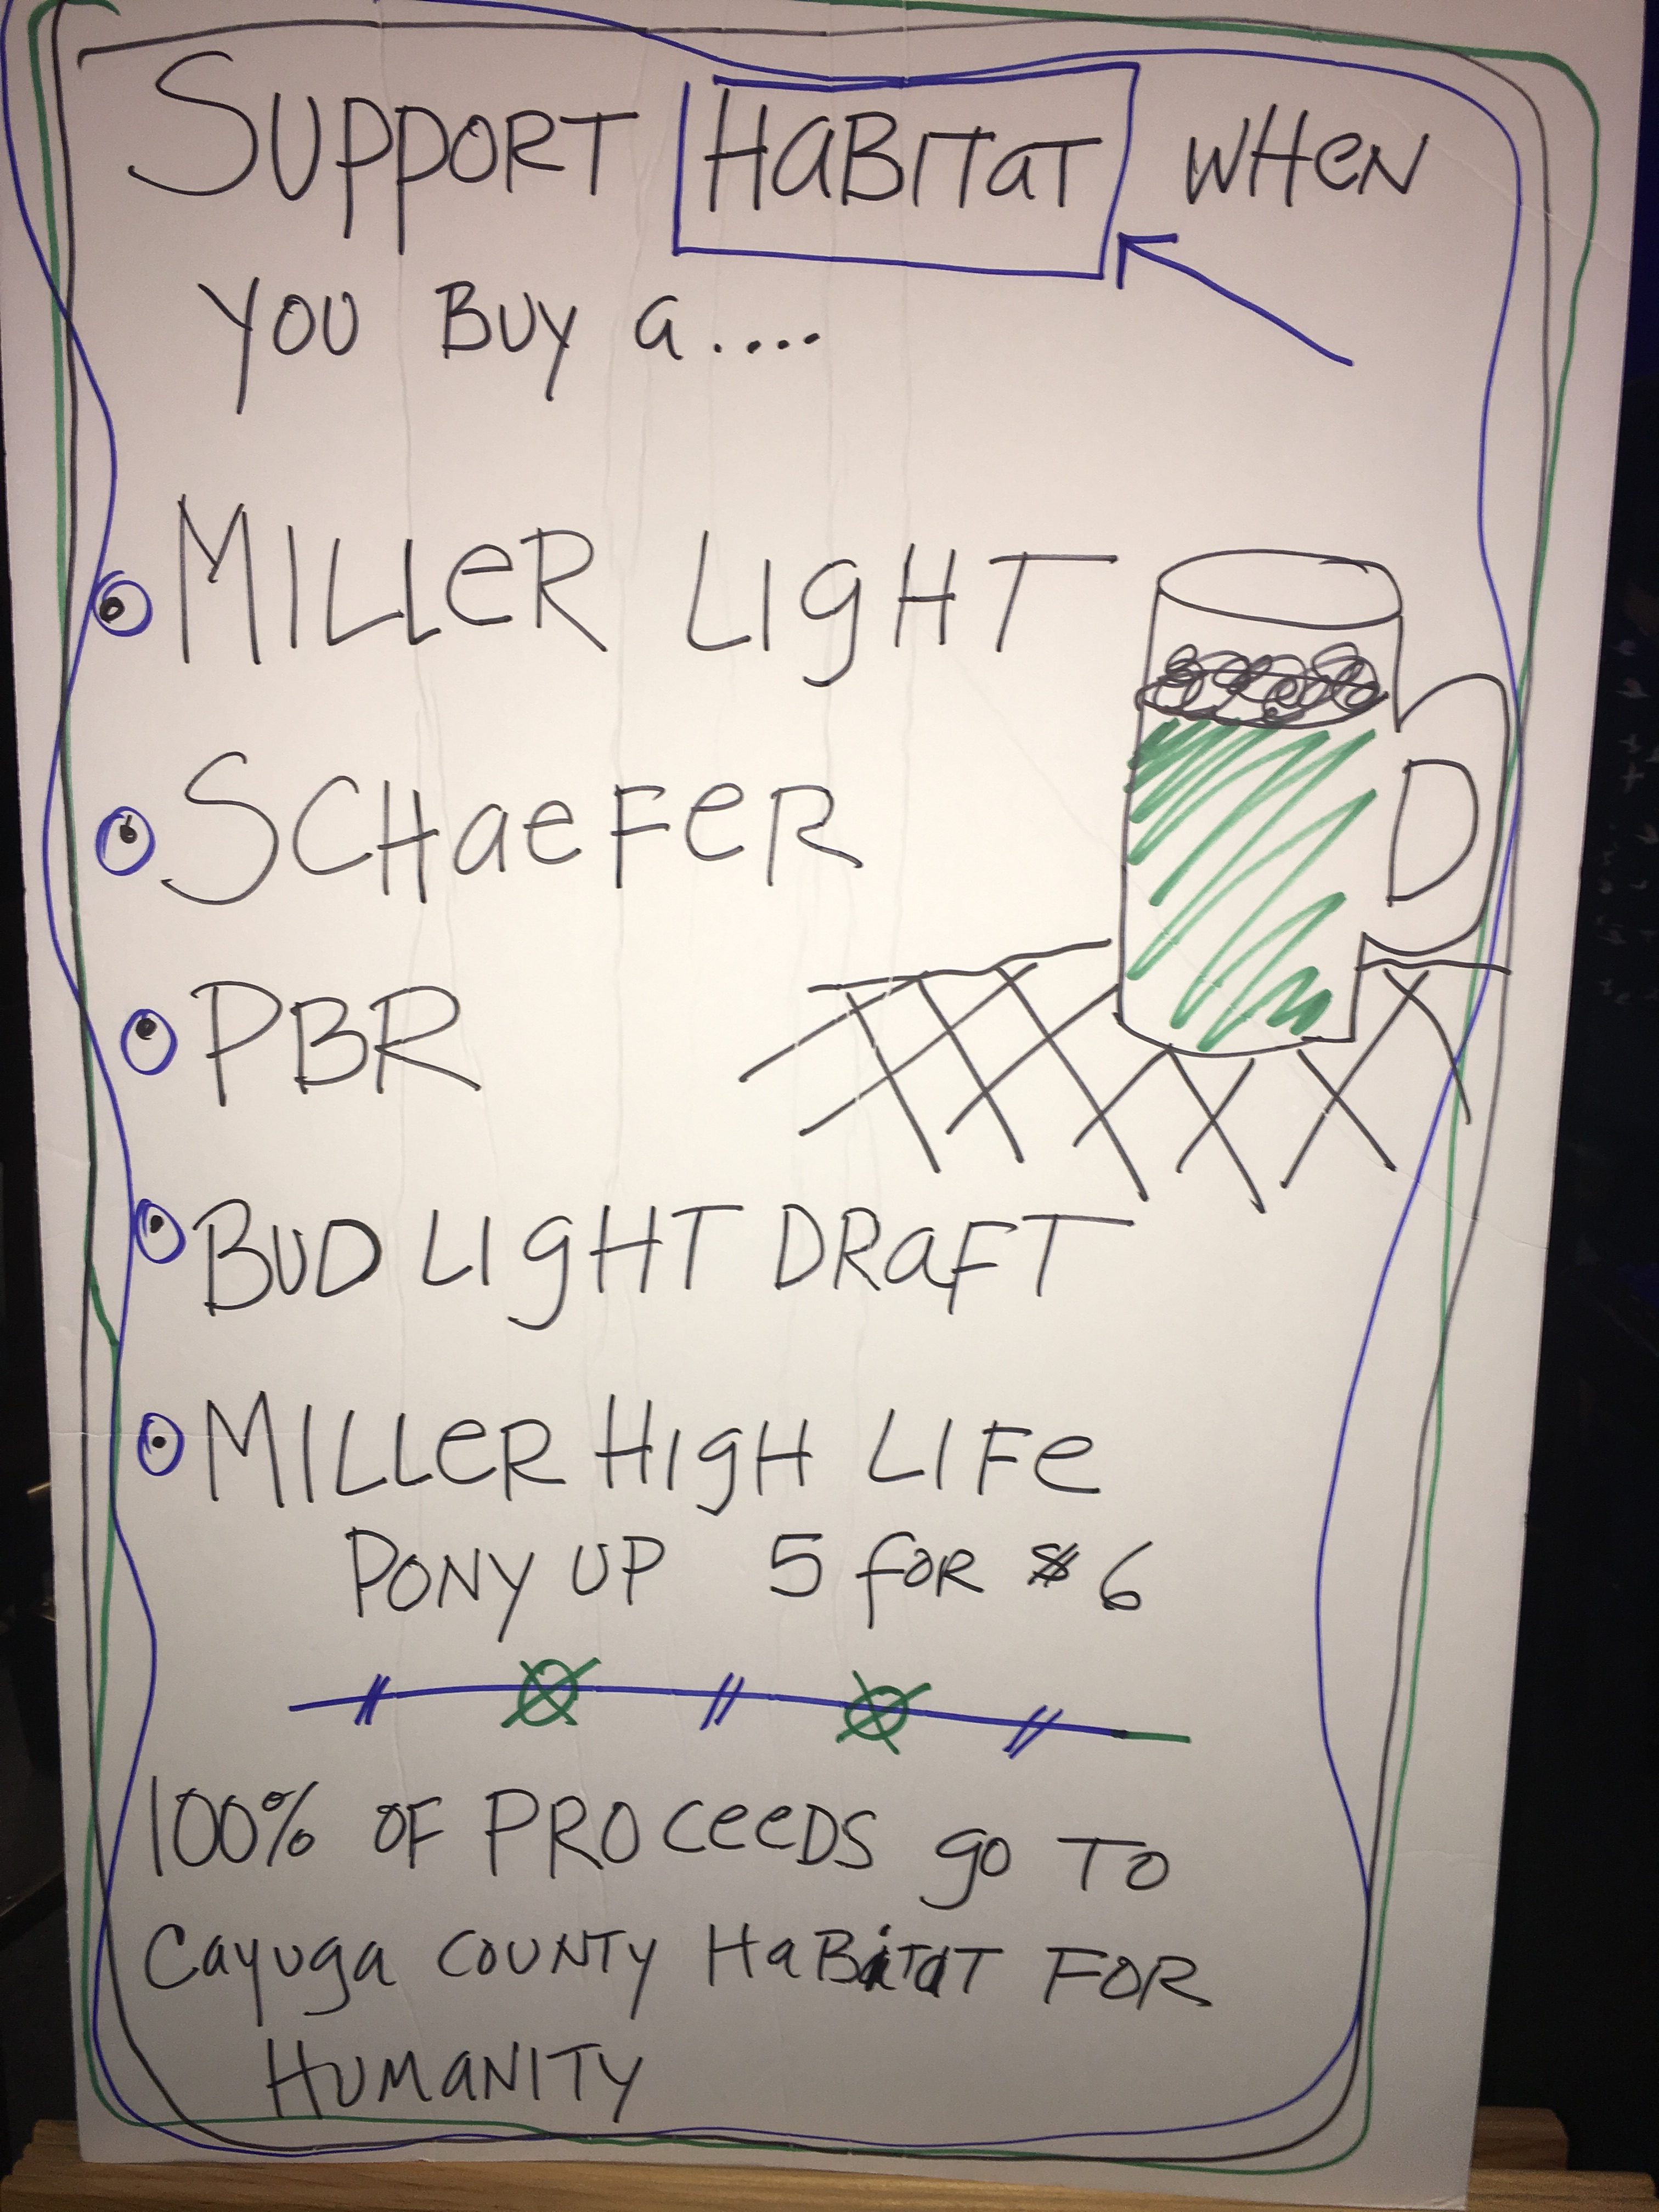 SUPPORT HaBITaT WHeN
YOU BUY a....
MILLeR LIgHT
SCHaeFeR
PBR
BUD LIgHT DRaFT
MILLeR HIgH LIFe
PONY UP 5 foR $6
100% OF PROCeeDS go TO
Cayuga COUNTY HaBiTaT FOR
HUMaNITY